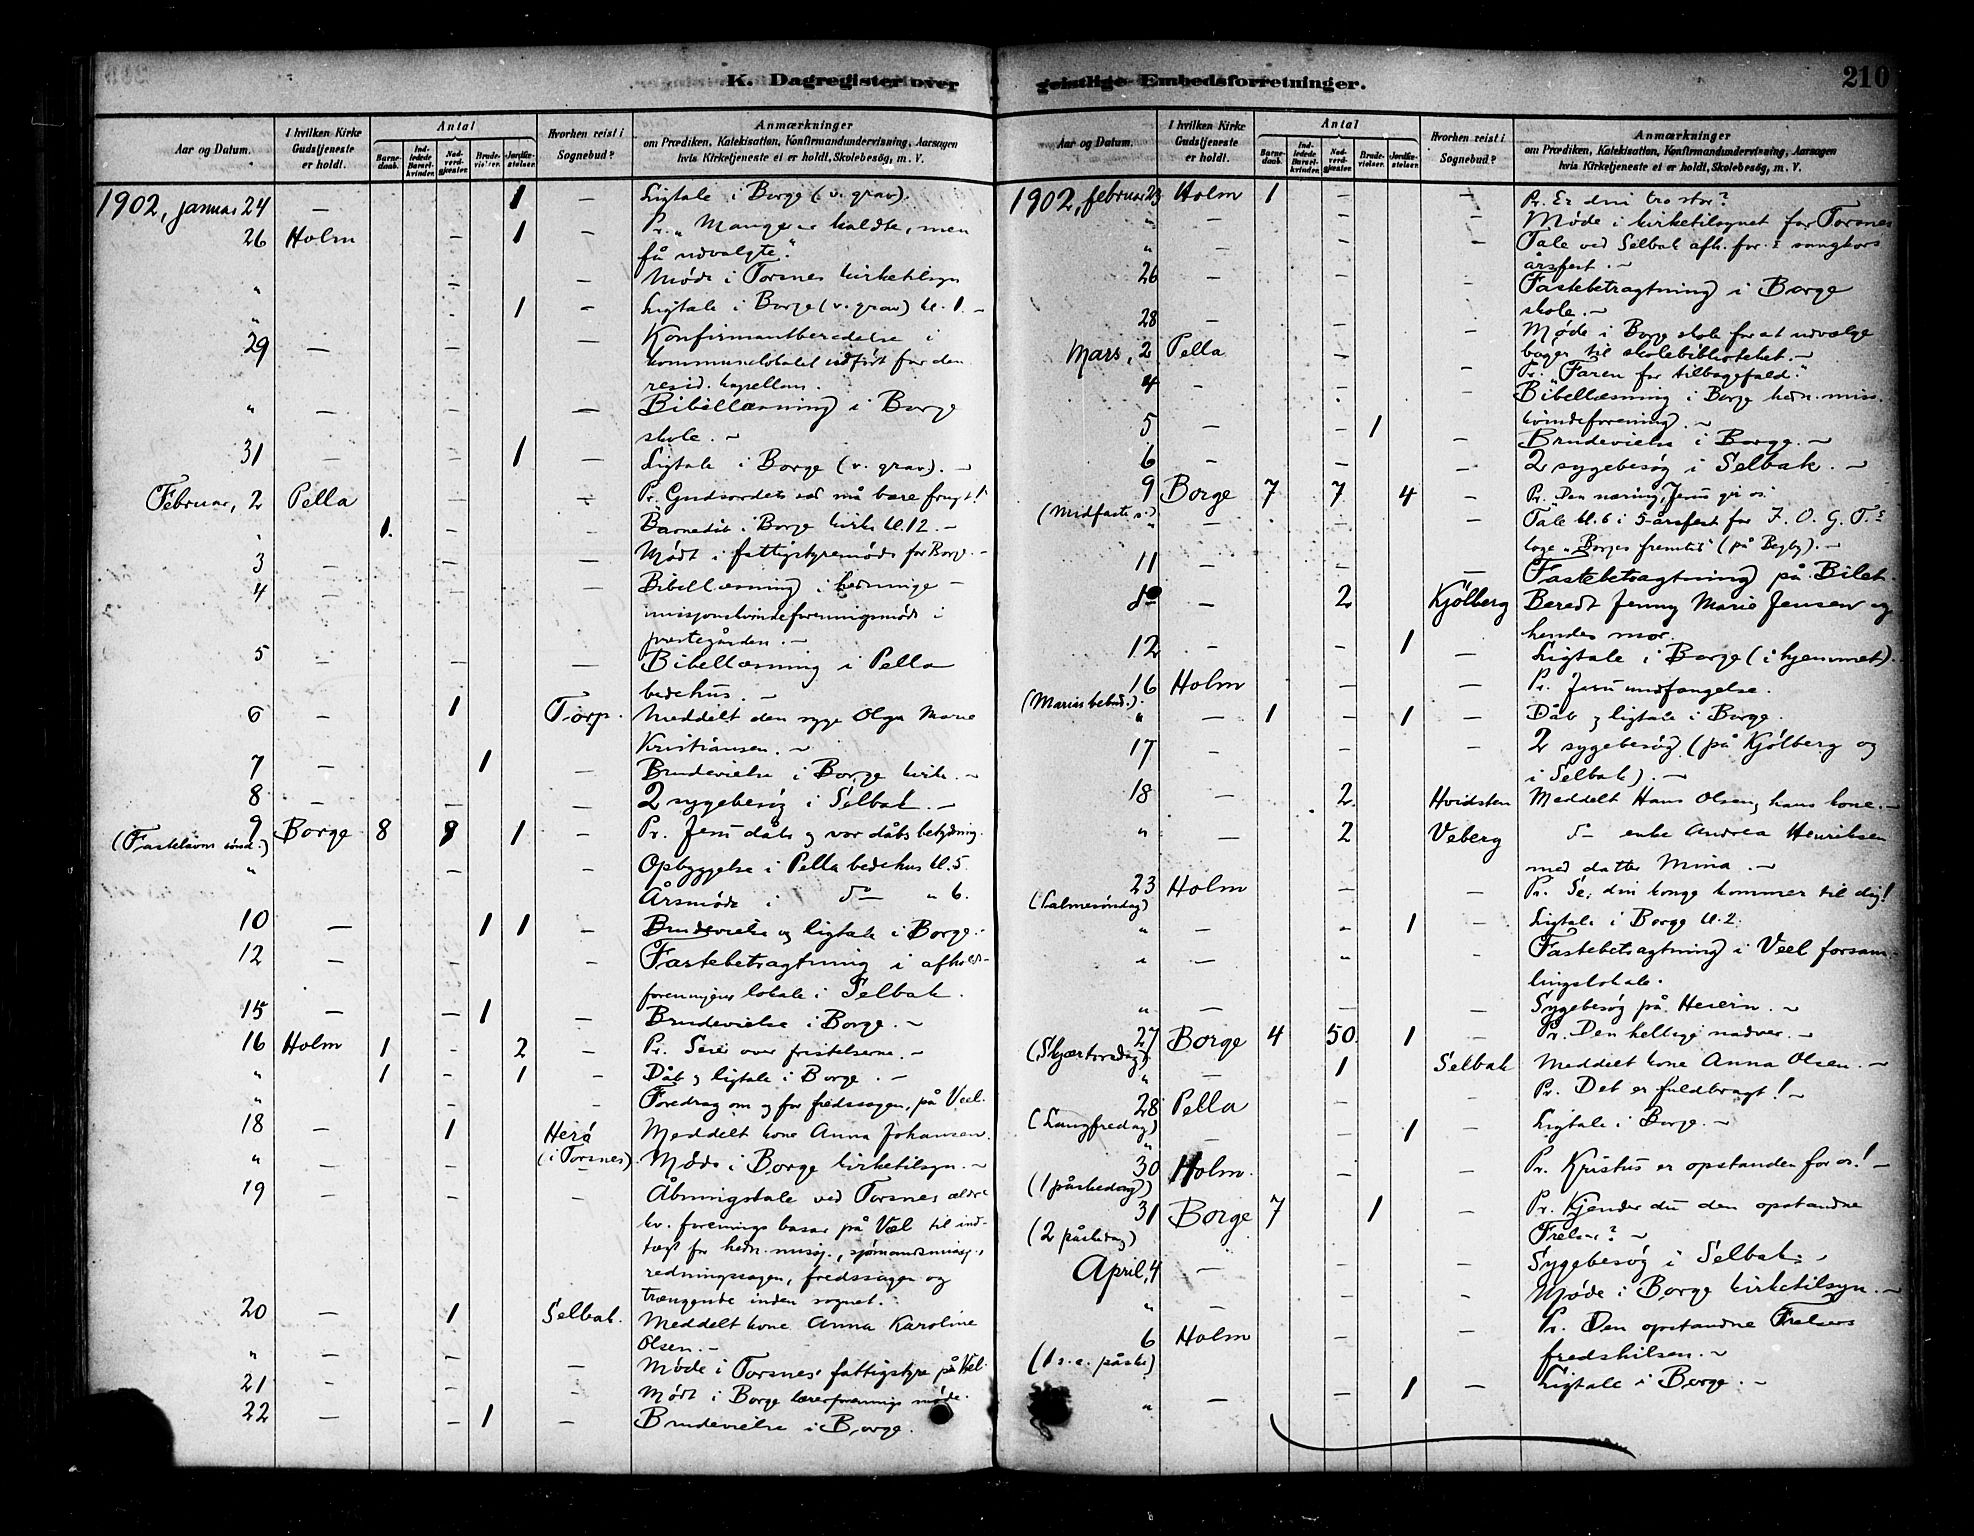 K. Dagregister over
Aar og Datum.
I hvilken Kirke Gudstjeneste er holdt.
Antal
Barnedaab.
Indledede Barselkvinder.
Nadverdgjæster.
Brudevielser.
Jordfæstelser.
Hvorhen reist i Sognebud?
Anmærkninger
om Prædiken, Katekisation, Konfirmandundervisning, Aarsagen
hvis Kirketjeneste ei er holdt, Skolebesög, m. V.
1902, januar 24 — 1 — Ligtale i Borge (v. grav).
26 Holm — 1 — Pr. „Mange er kaldte, men
få udvalgte."
" — — Møde i Torsnes kirketilsyn
" 1 — Ligtale i Borge (v. grav) kl. 1. —
29 — — Konfirmantberedelse i
kommunelokalet udført for den
resid. kapellan.
" — — — Bibellæsning i Borge
skole. —
31 — — 1 — Ligtale i Borge (v. grav). —
Februar, 2 Pella — — Pr. Gudsordets sæd må bære frugt!
1. — — Barnedåb i Borge kirke kl. 12. —
3 — — — Mødt i fattigstyremøde for Borge. —
4 — — — Bibellæsning i hedninge-
missjonskvindeforeningsmøde i
prestegården. —
5 — — — Bibellæsning i Pella
bedehus. —
6 — 1 Torp. Meddelt den syge Olga Marie
Kristiansen. —
7 — 1 — Brudevielse i Borge kirke. —
8 — — — 2 sygebesøg i Selbak. —
9 Borge 8 8 1 — Pr. Jesu dåb og vor dåbs betydning.
(Fastelavns sønd.)
" — Opbyggelse i Pella bedehus kl. 5.
Årsmøde i do — " 6.
10 — 1 1 — Brudevielse og ligtale i Borge. —
12 — — — Fastebetragtning i afholds-
foreningens lokale i Selbak.
15 — — 1 — Brudevielse i Borge. —
16 Holm 1 - 2 — Pr. Seier over fristelserne. —
" 1 - 1 — Dåb og ligtale i Borge. —
" — — Foredrag om og for fredssagen, på Væl.
18 — 1 Herø Meddelt kone Anna Johansen.
" — — (i Torsnes). Møde i Borge kirketilsyn. —
19 — — — Åbningstale ved Torsnes ældre
kv. forenings basar på Væl til ind-
tægt for hedn. missj., sjømandsmissj.,
redningssagen, fredssagen og
trængende inden sognet.
20 — 1 Selbak. Meddelt kone Anna Karoline
Olsen. —
" — — — Møde i Torsnes' fattigstyre på Væl.
21 — — — Mødt i Borge lærerforenings møde.
22 — — 1 — Brudevielse i Borge.
geistlige Embedsforretninger.
210
Aar og Datum.
I hvilken Kirke Gudstjeneste er holdt.
Antal
Barnedaab.
Indledede Barselkvinder.
Nadverdgjæster.
Brudevielser.
Jordfæstelser.
Hvorhen reist i Sognebud?
Anmærkninger
om Prædiken, Katekisation, Konfirmandundervisning, Aarsagen
hvis Kirketjeneste ei er holdt, Skolebesög, m. V.
1902, februar 23 Holm 1 — — Pr. Er din tro stor?
" — — — Møde i kirketilsynet for Torsnes
" — — — Tale ved Selbak afh. for.s sangkors
årsfest. —
26 — — — Fastebetragtning i Borge
skole. —
28 — — — Møde i Borge skole for at udvælge
bøger til skolebiblioteket. —
Mars, 2 Pella — — Pr. „Faren for tilbagefald."
4 — — Bibellæsning i Borge hedn. miss.
kvindeforening. —
5 — — 1 Brudevielse i Borge. —
6 — — — 2 sygebesøg i Selbak. —
9 Borge 7 7 4 — Pr. Den næring, Jesus gir os.
(Midfaste s.)
" — — — Tale kl. 6 i 5-årsfest for I. O. G. T.s
loge „Borges fremtid" (på Begby). —
11 — — — Fastebetragtning på Bilet.
do — 2 Kjølberg Beredt Jenny Marie Jensen og
hendes mor.
12 — — 1 — Ligtale i Borge (i hjemmet). —
16 Holm — — Pr. Jesu undfangelse.
(Marias bebud.)
" — 1 — 1 — Dåb og ligtale i Borge.
17 — — — 2 sygebesøg (på Kjølberg og
i Selbak). —
18 — 2 Hvidsten Meddelt Hans Olsen, hans kone. —
" — 2 Veberg do — enke Andrea Henriksen
med datter Mina. —
23 Holm — — Pr. Se, din konge kommer til dig!
(Palmesøndag)
" — — 1 — Ligtale i Borge kl. 2.
" — — — Fastebetragtning i Veel forsam-
lingslokale.
" — — — Sygebesøg på Heiern. —
27 Borge 4 50. 1 — Pr. Den hellige nadver. —
(Skjærtorsdag)
" — 1 Selbak Meddelt kone Anna Olsen. —
28 Pella — — Pr. Det er fuldbragt! —
(Langfredag)
" — — 1 — Ligtale i Borge. —
30 Holm. — — Pr. Kristus er opstanden for os! —
(1 påskedag)
31 Borge 7 1 — Pr. Kjender du den opstandne
(2 påskedag)
Frelser? —
April, 4 — — — Sygebesøg i Selbak. —
" — — — Møde i Borge kirketilsyn. —
6 Holm — — Pr. Den opstandne Frelsers
(1 s. e. påske)
fredshilsen. —
" — — 1 — Ligtale i Borge. —